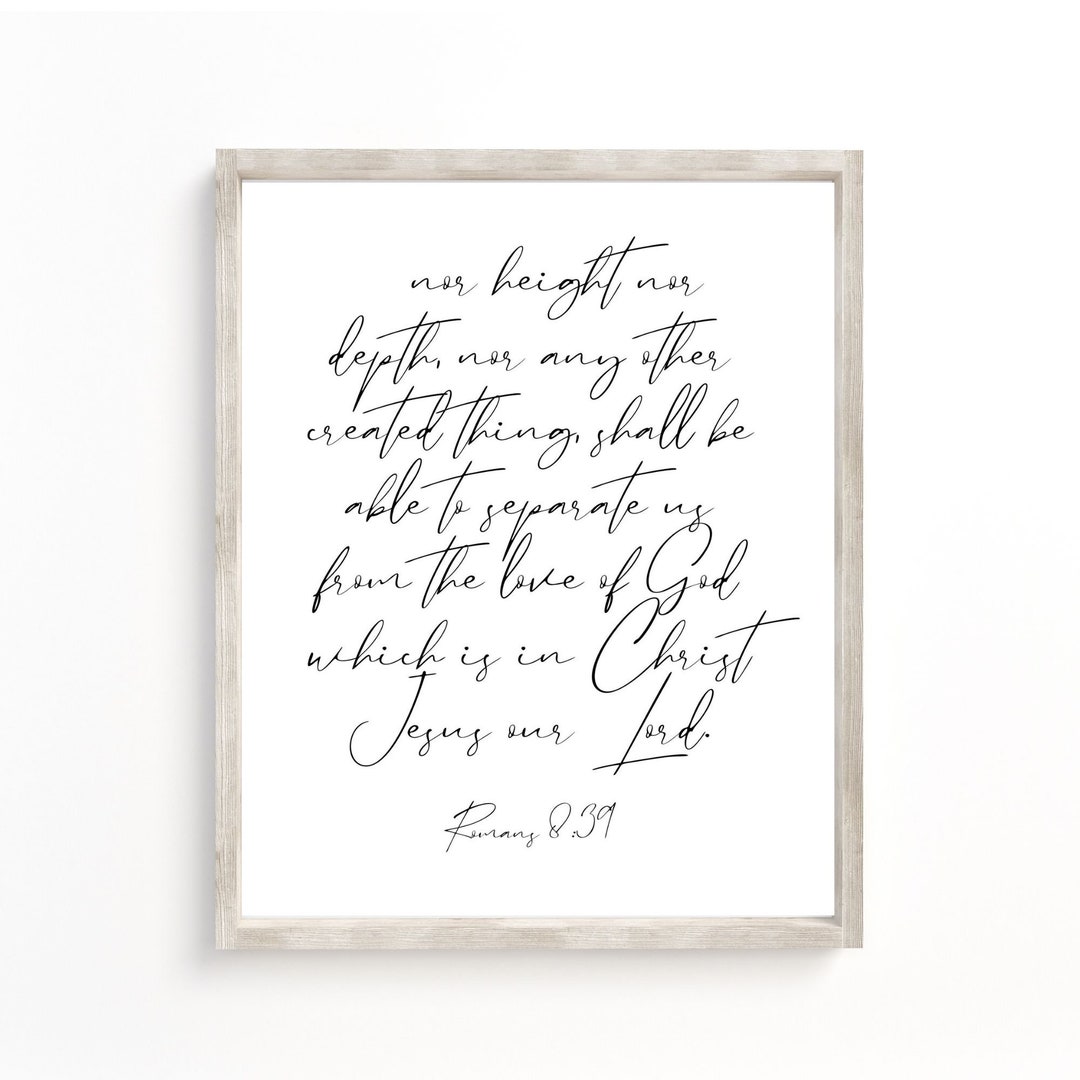 nor height nor
depth, nor any other
created thing, shall be
able to separate us
from the love of God
which is in Christ
Jesus our Lord.
Romans 8:39